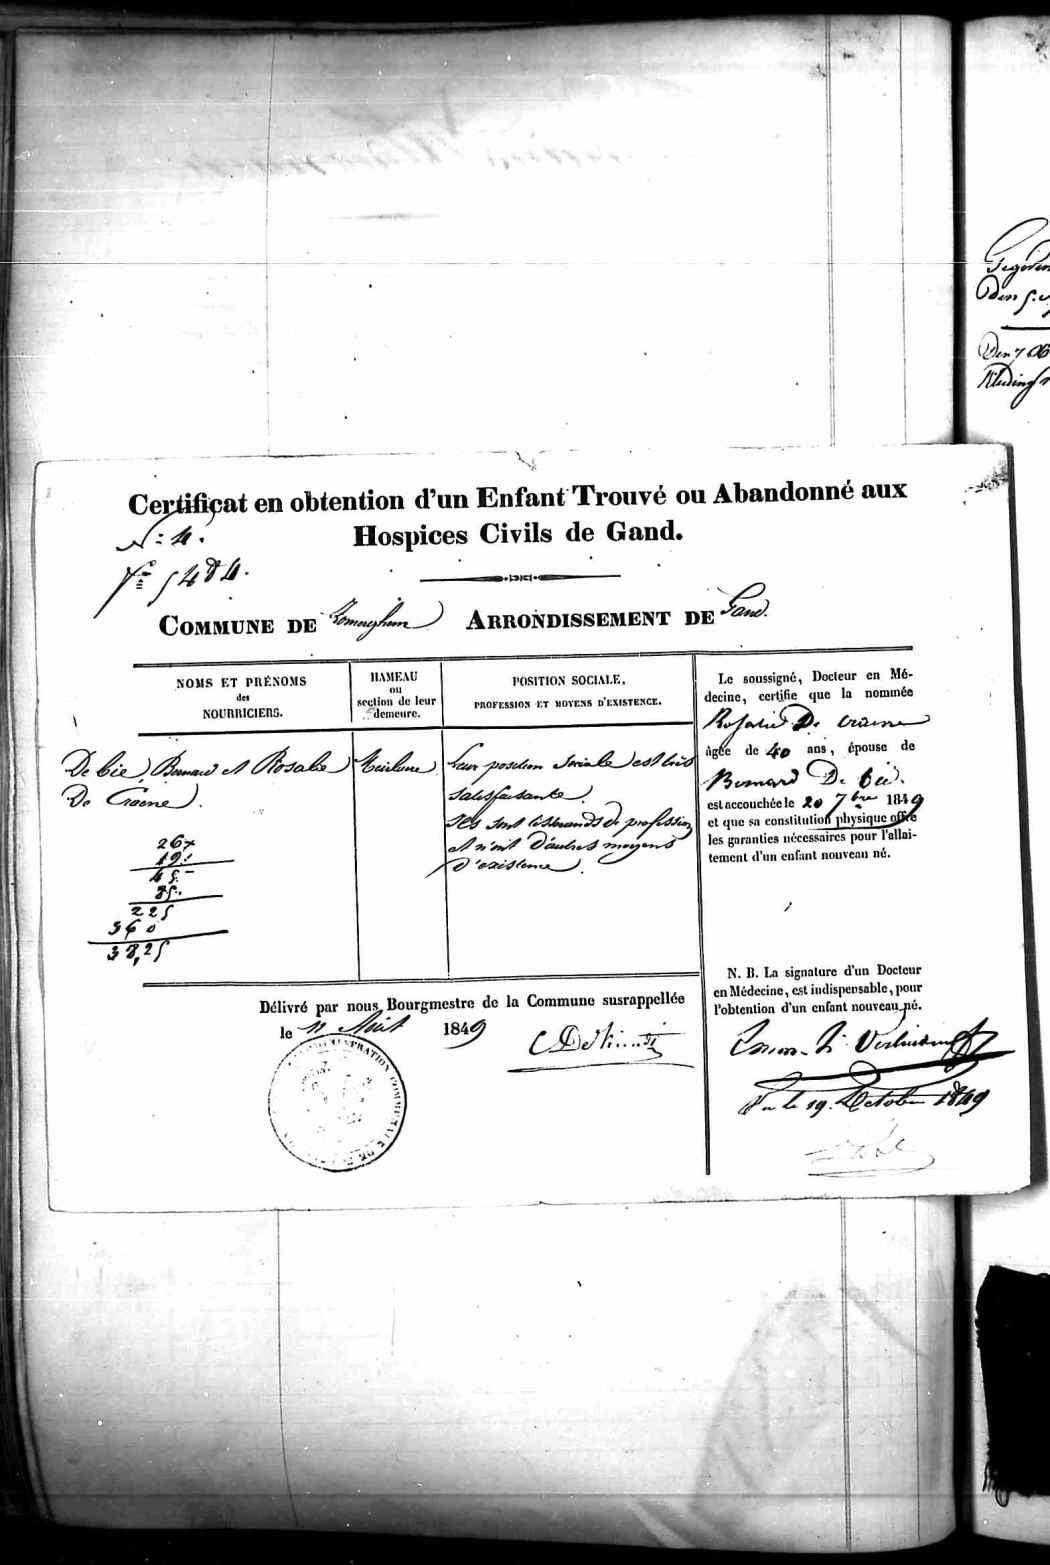 Certificat en obtention d'un Enfant Trouvé ou Abandonné aux
Hospices Civils de Gand.
N.º 4.
COMMUNE DE Somerghem ARRONDISSEMENT DE Gand.
NOMS ET PRÉNOMS
des
NOURRICIERS.
HAMEAU
ou
section de leur
demeure.
POSITION SOCIALE,
PROFESSION ET MOYENS D'EXISTENCE.
De bie, Bernard et Rosalie
De Craene.
Meirlune
Leur position sociale est très
satisfaisante.
Ils sont tisserands de profession
et n'ont d'autres moyens
d'existence.
267
19:
45.-
85.
225
360
38,25
Le soussigné, Docteur en Mé-
decine, certifie que la nommée
Rosalie De Craene
âgée de 40 ans, épouse de
Bernard De bie.
est accouchée le 20 7bre 1849
et que sa constitution physique offre
les garanties nécessaires pour l'allai-
tement d'un enfant nouveau né.
N. B. La signature d'un Docteur
en Médecine, est indispensable, pour
l'obtention d'un enfant nouveau né.
Délivré par nous Bourgmestre de la Commune susrappellée
le 11 Août 1849
ADMINISTRATION COMMUNALE DE
Vu le 19. Octobre 1849
Den 5.
Den 7